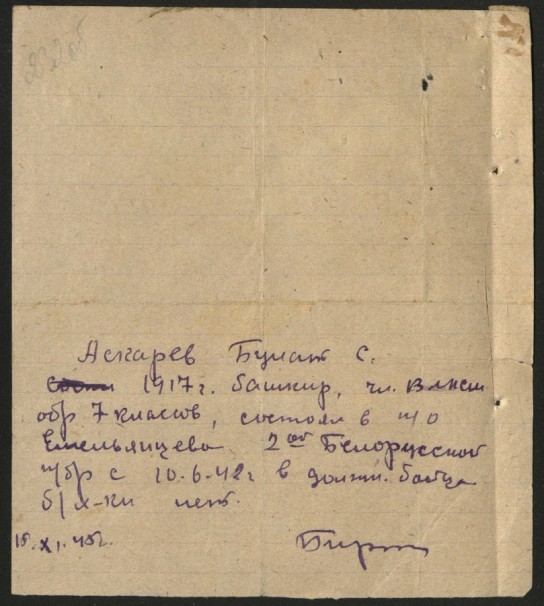 232об
Аскарев Булат С.
1917 г. башкир, чл. ВЛКСМ
обр. 7 классов, состоял в п/о
Емельянцева 2ой Белорусской
п/бр с 10.6.42 г в должн. бойца
б/х-ки нет.
15.XI.42г.